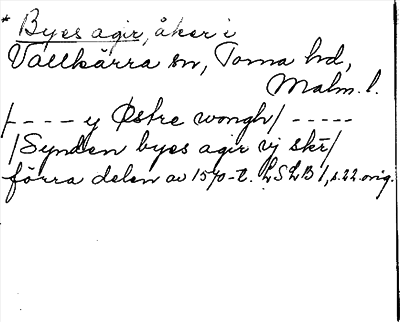 * Byes agir, åker i
Vallkärra sn, Torna hd,
Malm. l.
/- - - - y Østre wongh/ - - - - -
/Synden byes agir vj skr/
förra delen av 1570-t. LSLB 1, s. 22. orig.